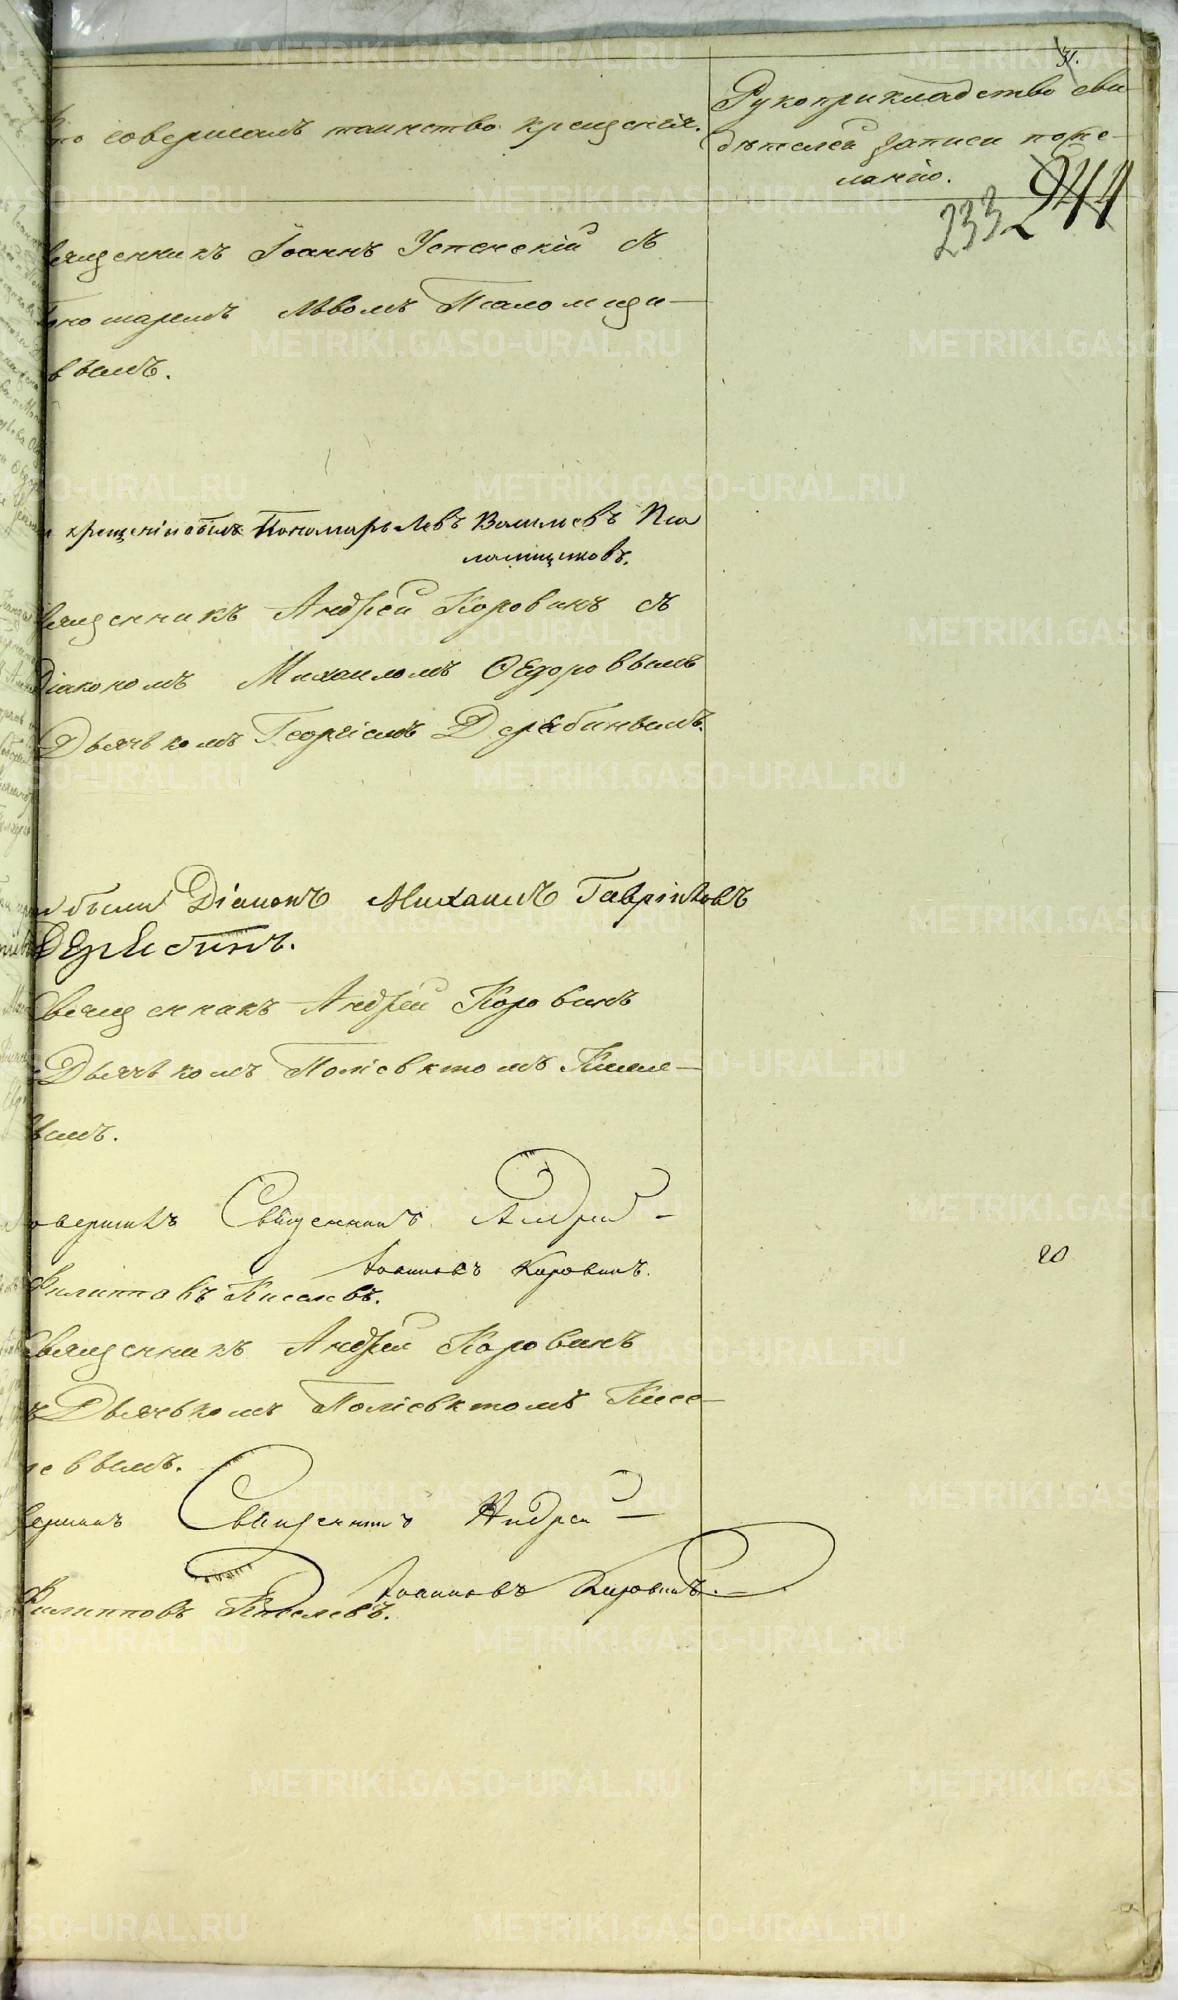 31.
то совершалъ таинство крещенія.
Рукоприкладство сви
дѣтелей записи поже-
ланію.
233 244
вященникъ Іоаннъ Успенскій съ
ономаремъ Львомъ Псаломщи-
вымъ.
крещеніи былъ Пономарь Левъ Васильевъ Пса
ломщиковъ.
вященникъ Андрей Коровинъ съ
Діакономъ Михаиломъ Ѳедоровымъ
Дьячкомъ Георгіемъ Дерябинымъ.
были Діаконъ Михаилъ Гавріиловъ
Дерябинъ.
Священникъ Андрей Коровинъ
Дьячкомъ Поліевктомъ Кисе-
вымъ.
овершилъ Священникъ Андрей
Іоанновъ Коровинъ.
Филипповъ Киселевъ.
Священникъ Андрей Коровинъ
ъ Дьячькомъ Поліевктомъ Кисе-
левымъ.
вершилъ Священникъ Андрей
Іоанновъ Коровинъ.
Филипповъ Киселевъ.
20
METRIKI.GASO-URAL.RU